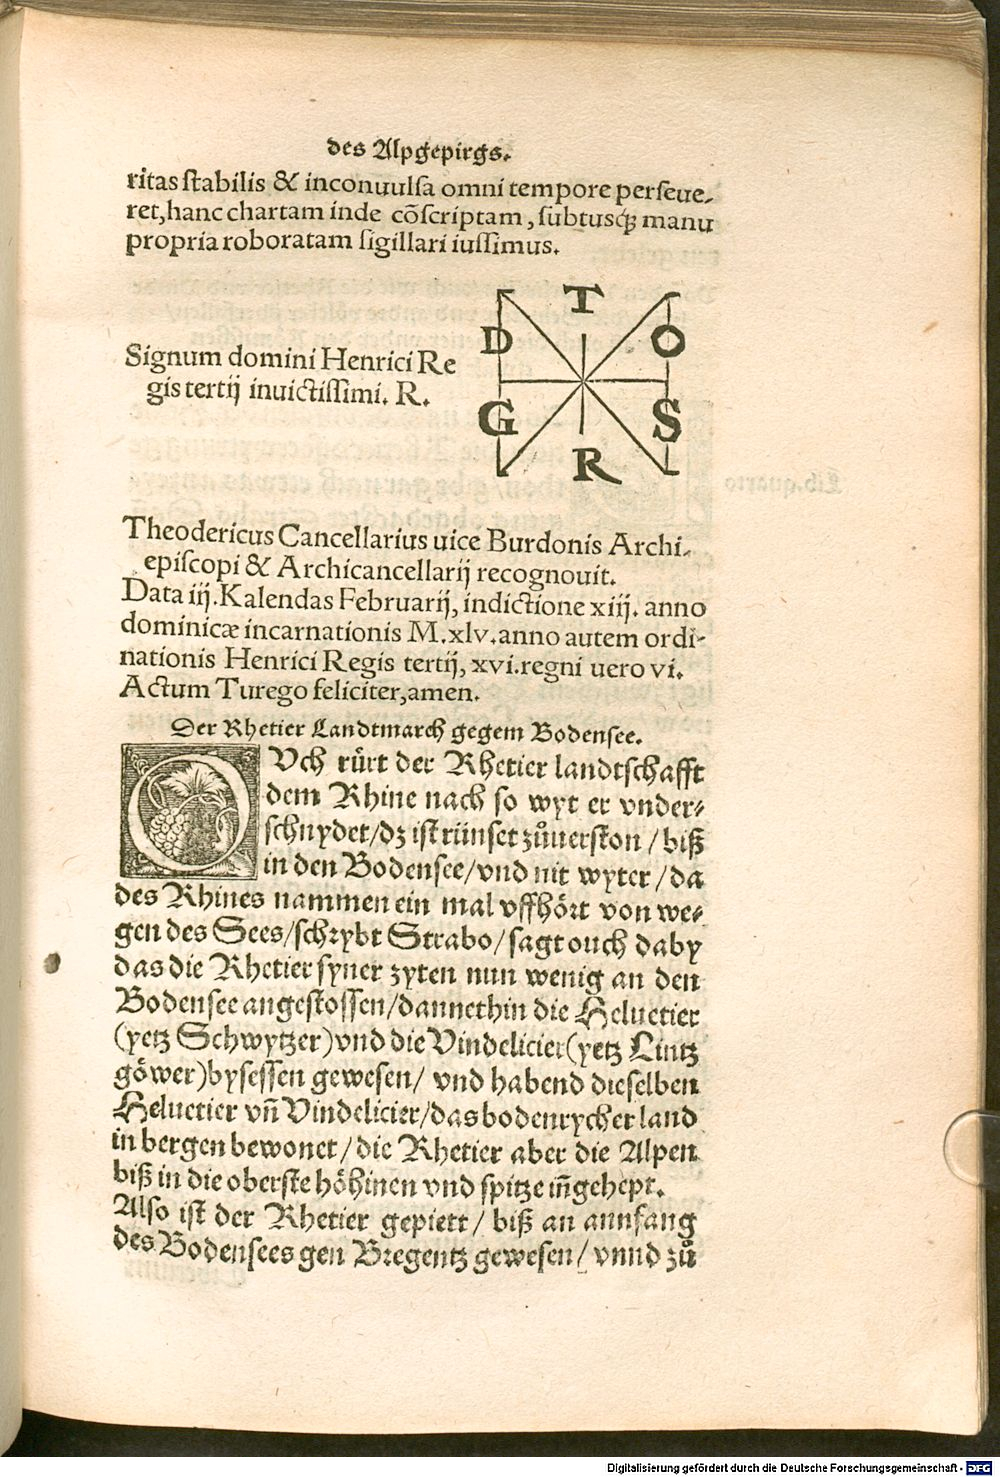 des Alpgepirgs.
ritas stabilis & inconuulsa omni tempore perseue-
ret, hanc chartam inde cõscriptam, subtusq́ꝫ manu
propria roboratam sigillari iussimus.
T
D O
Signum domini Henrici Re
gis tertij inuictissimi. R.
G S
R
Theodericus Cancellarius uice Burdonis Archi-
episcopi & Archicancellarij recognouit.
Data iij. Kalendas Februarij, indictione xiij. anno
dominicæ incarnationis M. xlv. anno autem ordi-
nationis Henrici Regis tertij, xvi. regni uero vi.
Actum Turego feliciter, amen.
Der Rhetier Landtmarch gegem Bodensee.
OVch rürt der Rhetier landtschafft
dem Rhine nach so wyt er vnder-
schnydet/dz ist rünset zůuerston/biß
in den Bodensee/vnd nit wyter/da
des Rhines nammen ein mal vffhört von we-
gen des Sees/schrybt Strabo/sagt ouch daby
das die Rhetier syner zyten nun wenig an den
Bodensee angestossen/dannethin die Heluetier
(yetz Schwytzer)vnd die Vindelicier(yetz Lintz
göwer)bysessen gewesen/ vnd habend dieselben
Heluetier vñ Vindelicier/das bodenrycher land
in bergen bewonet/die Rhetier aber die Alpen
biß in die oberste höhinen vnd spitze iñgehept.
Also ist der Rhetier gepiett/ biß an annfang
des Bodensees gen Bregentz gewesen/ vnnd zů
Digitalisierung gefördert durch die Deutsche Forschungsgemeinschaft - DFG